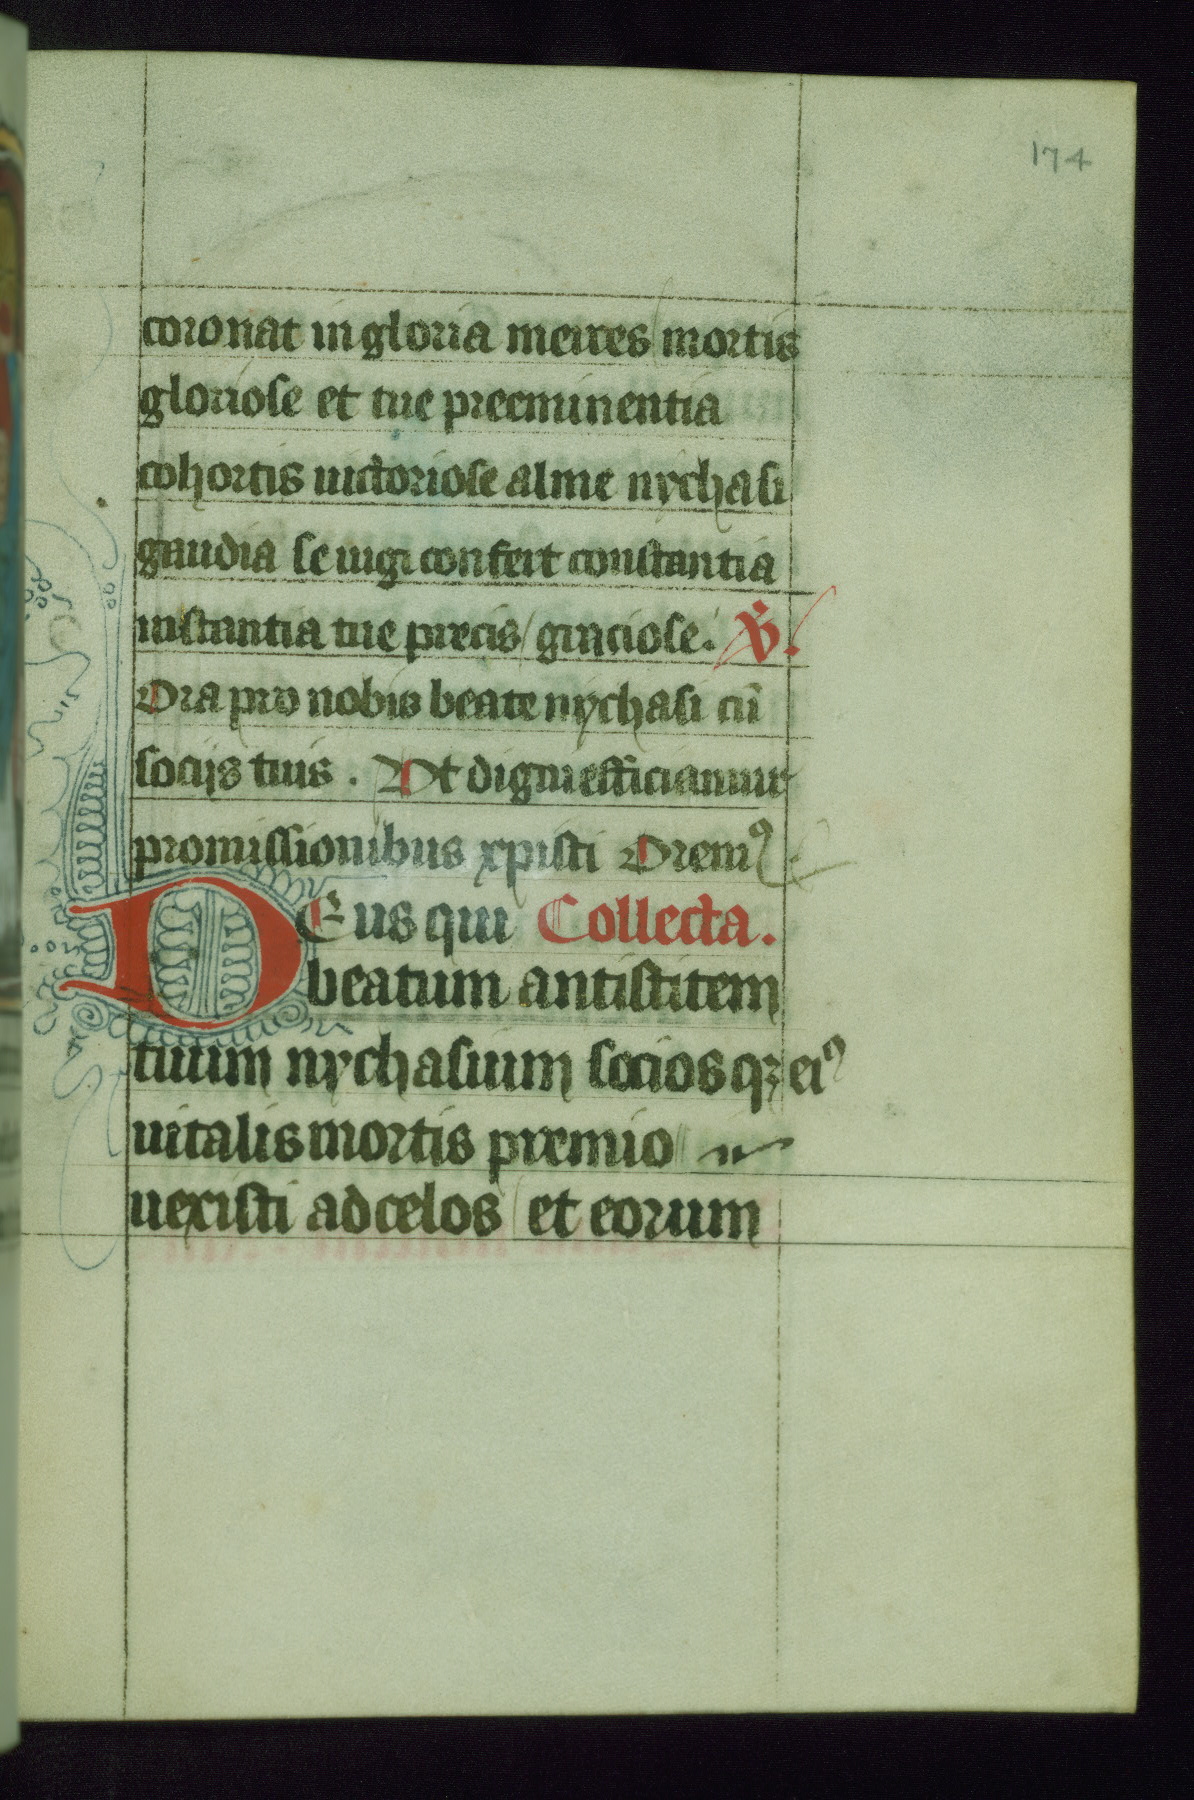 174
coronat in gloria merces mortis
gloriose et tue preeminentia
cohortis uictoriose alme nychasi
gaudia se iugi confert constantia
instantia tue precis graciose. V̇.
Ora pro nobis beate nychasi cū
socijs tuis. Vt digni efficiamur
promissionibus xpisti Oremꝰ
DEus qui Collecta.
beatum antistitem
tuum nychasium sociosqꝫ eiꝰ
uitalis mortis premio
uexisti ad celos et eorum